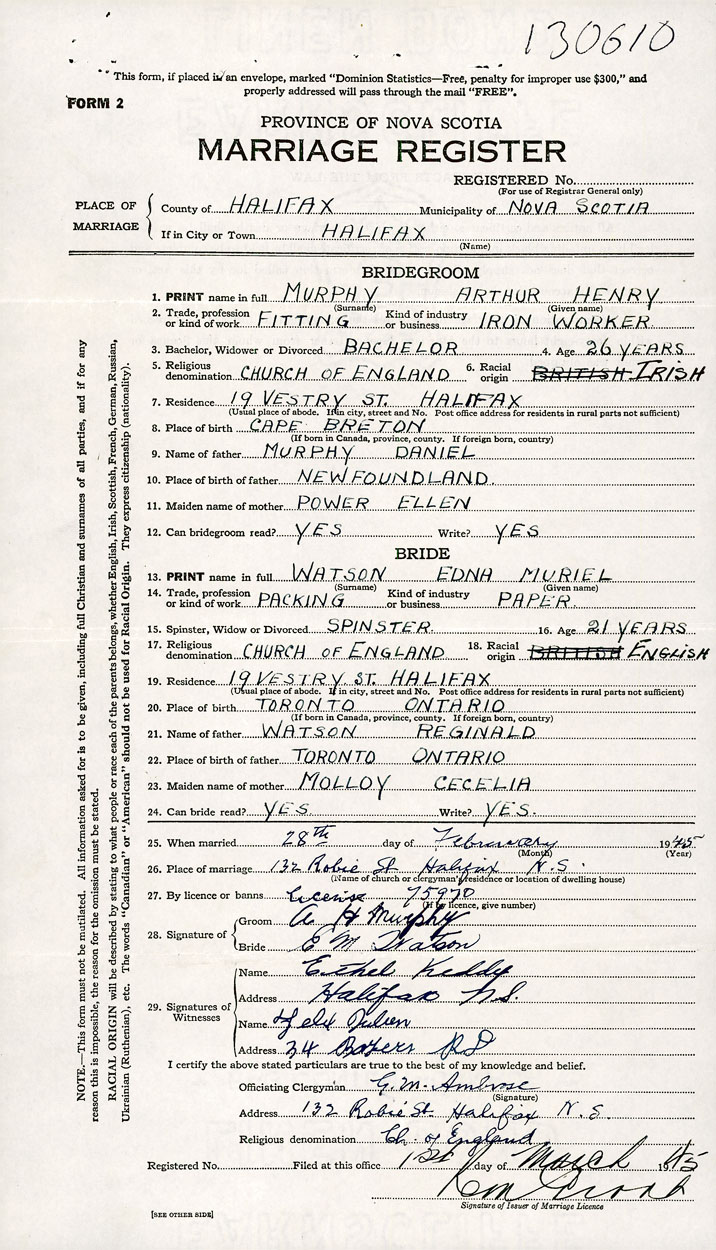 130610
This form, if placed in an envelope, marked “Dominion Statistics—Free, penalty for improper use $300,” and
properly addressed will pass through the mail “FREE”.
FORM 2
PROVINCE OF NOVA SCOTIA
MARRIAGE REGISTER
REGISTERED No.
(For use of Registrar General only)
PLACE OF MARRIAGE
County of HALIFAX Municipality of NOVA SCOTIA
If in City or Town HALIFAX
(Name)
BRIDEGROOM
1. PRINT name in full MURPHY ARTHUR HENRY
(Surname) (Given name)
2. Trade, profession or kind of work FITTING Kind of industry or business IRON WORKER
3. Bachelor, Widower or Divorced BACHELOR 4. Age 26 YEARS
5. Religious denomination CHURCH OF ENGLAND 6. Racial origin BRITISH IRISH
7. Residence 19 VESTRY ST. HALIFAX
(Usual place of abode. If in city, street and No. Post office address for residents in rural parts not sufficient)
8. Place of birth CAPE BRETON
(If born in Canada, province, county. If foreign born, country)
9. Name of father MURPHY DANIEL
10. Place of birth of father NEWFOUNDLAND.
11. Maiden name of mother POWER ELLEN
12. Can bridegroom read? YES Write? YES
BRIDE
13. PRINT name in full WATSON EDNA MURIEL
(Surname) (Given name)
14. Trade, profession or kind of work PACKING Kind of industry or business PAPER.
15. Spinster, Widow or Divorced SPINSTER. 16. Age 21 YEARS
17. Religious denomination CHURCH OF ENGLAND 18. Racial origin BRITISH ENGLISH
19. Residence 19 VESTRY ST. HALIFAX
(Usual place of abode. If in city, street and No. Post office address for residents in rural parts not sufficient)
20. Place of birth TORONTO ONTARIO
(If born in Canada, province, county. If foreign born, country)
21. Name of father WATSON REGINALD
22. Place of birth of father TORONTO ONTARIO
23. Maiden name of mother MOLLOY CECELIA
24. Can bride read? YES Write? YES.
25. When married 28th day of February 1945
(Month) (Year)
26. Place of marriage 132 Robie St Halifax N.S.
(Name of church or clergyman's residence or location of dwelling house)
27. By licence or banns License 75970
(If by licence, give number)
28. Signature of
Groom A H Murphy
Bride E M Watson
29. Signatures of Witnesses
Name Ethel Keddy
Address Halifax N.S.
Name
Address 34 RD
I certify the above stated particulars are true to the best of my knowledge and belief.
Officiating Clergyman G. M. Ambrose
(Signature)
Address 132 Robie St. Halifax N.S.
Religious denomination Ch. of England
Registered No. Filed at this office 1st day of March 1945
Signature of Issuer of Marriage Licence
[SEE OTHER SIDE]
NOTE.—This form must not be mutilated. All information asked for is to be given, including full Christian and surnames of all parties, and if for any
reason this is impossible, the reason for the omission must be stated.
RACIAL ORIGIN will be described by stating to what people or race each of the parents belongs, whether English, Irish, Scottish, French, German, Russian,
Ukrainian (Ruthenian), etc. The words “Canadian” or “American” should not be used for Racial Origin. They express citizenship (nationality).